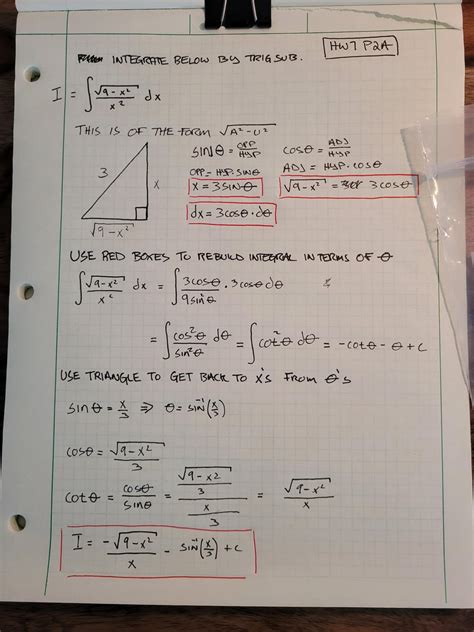 HW7 P2A
INTEGRATE BELOW BY TRIG SUB.
I = ∫ √(9-x²)/x² dx
THIS IS OF THE FORM √(A²-U²)
3
x
√(9-x²)
sinθ = OPP/HYP
OPP = HYP·SINθ
x = 3SINθ
cosθ = ADJ/HYP
ADJ = HYP·cosθ
√(9-x²) = 3cosθ
dx = 3cosθ·dθ
USE RED BOXES TO REBUILD INTEGRAL IN TERMS OF θ
∫ √(9-x²)/x² dx = ∫ 3cosθ/9sin²θ · 3cosθdθ
= ∫ cos²θ/sin²θ dθ = ∫ cot²θ dθ = -cotθ - θ + C
USE TRIANGLE TO GET BACK TO X's FROM θ's
sinθ = x/3 ⇒ θ = sin⁻¹(x/3)
cosθ = √(9-x²)/3
cotθ = cosθ/sinθ = (√(9-x²)/3)/(x/3) = √(9-x²)/x
I = -√(9-x²)/x - SIN⁻¹(x/3) + C